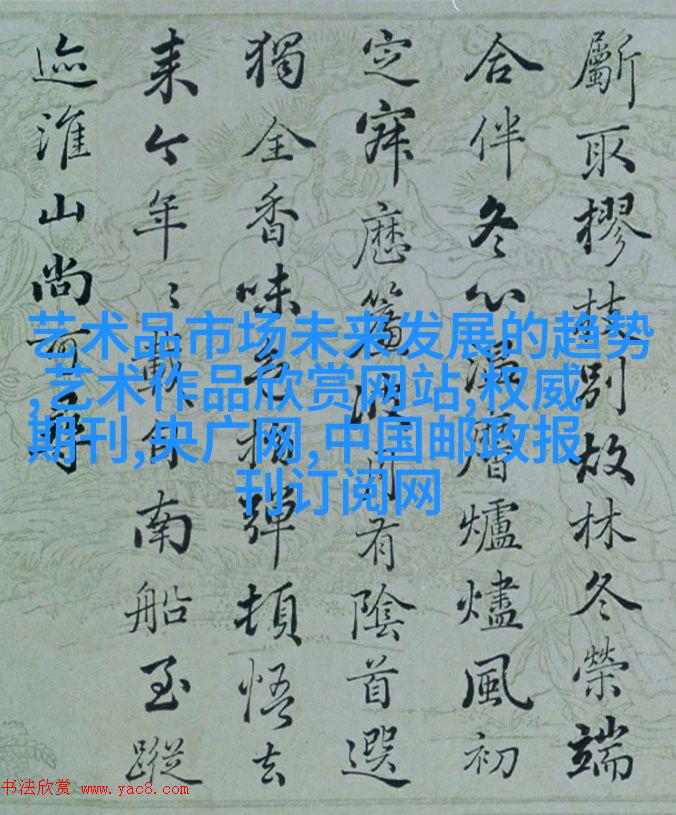 斸取樛枝別故林冬榮端
合伴冬心層爐燼風初
定寐歷簷月有陰首選
獨全香味彈頓悟去
来今年〻載南船至蹤
迹淮山尚可尋
艺术品市场未来发展的趋势
,艺术作品欣赏网站,权威
期刊,央广网,中国邮政报
刊订阅网
书法欣赏 www.yac8.com